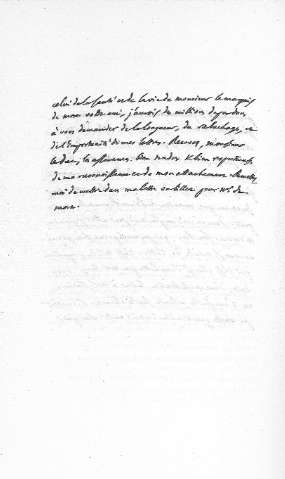 celui de la santé et de la vie de monsieur le marquis
de mon j'aurois du million de pardons
à vous demander de la longueur, du rabachage, et
de l'importunité de mes lettres. Recevez, monsieur
le duc, les assurances bien tendres & bien respectueuses
de ma reconnoissance et de mon attachement
moi de mettre dans ma lettre un billet pour Me. de